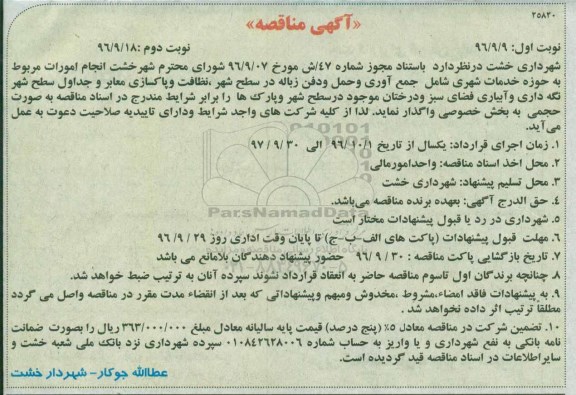 ۲۵۸۲۰
«آگهی مناقصه»
نوبت اول: ۹۶/۹/۹ نوبت دوم :۹۶/۹/۱۸
شهرداری خشت درنظردارد باستناد مجوز شماره ۴۷/ش مورخ ۹۶/۹/۰۷ شورای محترم شهرخشت انجام امورات مربوط
به حوزه خدمات شهری شامل جمع آوری وحمل ودفن زباله در سطح شهر ،نظافت وپاکسازی معابر و جداول سطح شهر
نگه داری وآبیاری فضای سبز ودرختان موجود درسطح شهر وپارک ها را برابر شرایط مندرج در اسناد مناقصه به صورت
حجمی به بخش خصوصی واگذار نماید. لذا از کلیه شرکت های واجد شرایط ودارای تاییدیه صلاحیت دعوت به عمل
می‌آید.
۱. زمان اجرای قرارداد: یکسال از تاریخ ۹۶/۱۰/۱ الی ۳۰ /۹ / ۹۷
۲. محل اخذ اسناد مناقصه: واحدامورمالی
۳. محل تسلیم پیشنهاد: شهرداری خشت
۴. حق الدرج آگهی: بعهده برنده مناقصه می‌باشد.
۵. شهرداری در رد یا قبول پیشنهادات مختار است
۶. مهلت قبول پیشنهادات (پاکت های الف-ب-ج) تا پایان وقت اداری روز ۲۹ / ۹ /۹۶
۷. تاریخ بازگشایی پاکت مناقصه : ۳۰ / ۹ / ۹۶ حضور پیشنهاد دهندگان بلامانع می باشد
۸. چنانچه برندگان اول تاسوم مناقصه حاضر به انعقاد قرارداد نشوند سپرده آنان به ترتیب ضبط خواهد شد.
۹. به پیشنهادات فاقد امضاء،مشروط ،مخدوش ومبهم وپیشنهاداتی که بعد از انقضاء مدت مقرر در مناقصه واصل می گردد
مطلقا ترتیب اثر داده نخواهد شد .
۱۰. تضمین شرکت در مناقصه معادل ۵٪ (پنج درصد) قیمت پایه سالیانه معادل مبلغ ۳۶۳/۰۰۰/۰۰۰ ریال را بصورت ضمانت
نامه بانکی به نفع شهرداری و یا واریز به حساب شماره ۰۱۰۸۴۲۶۲۸۰۰۶ سپرده شهرداری نزد بانک ملی شعبه خشت و
سایراطلاعات در اسناد مناقصه قید گردیده است.
عطاالله جوکار- شهردار خشت
ParsNamadData